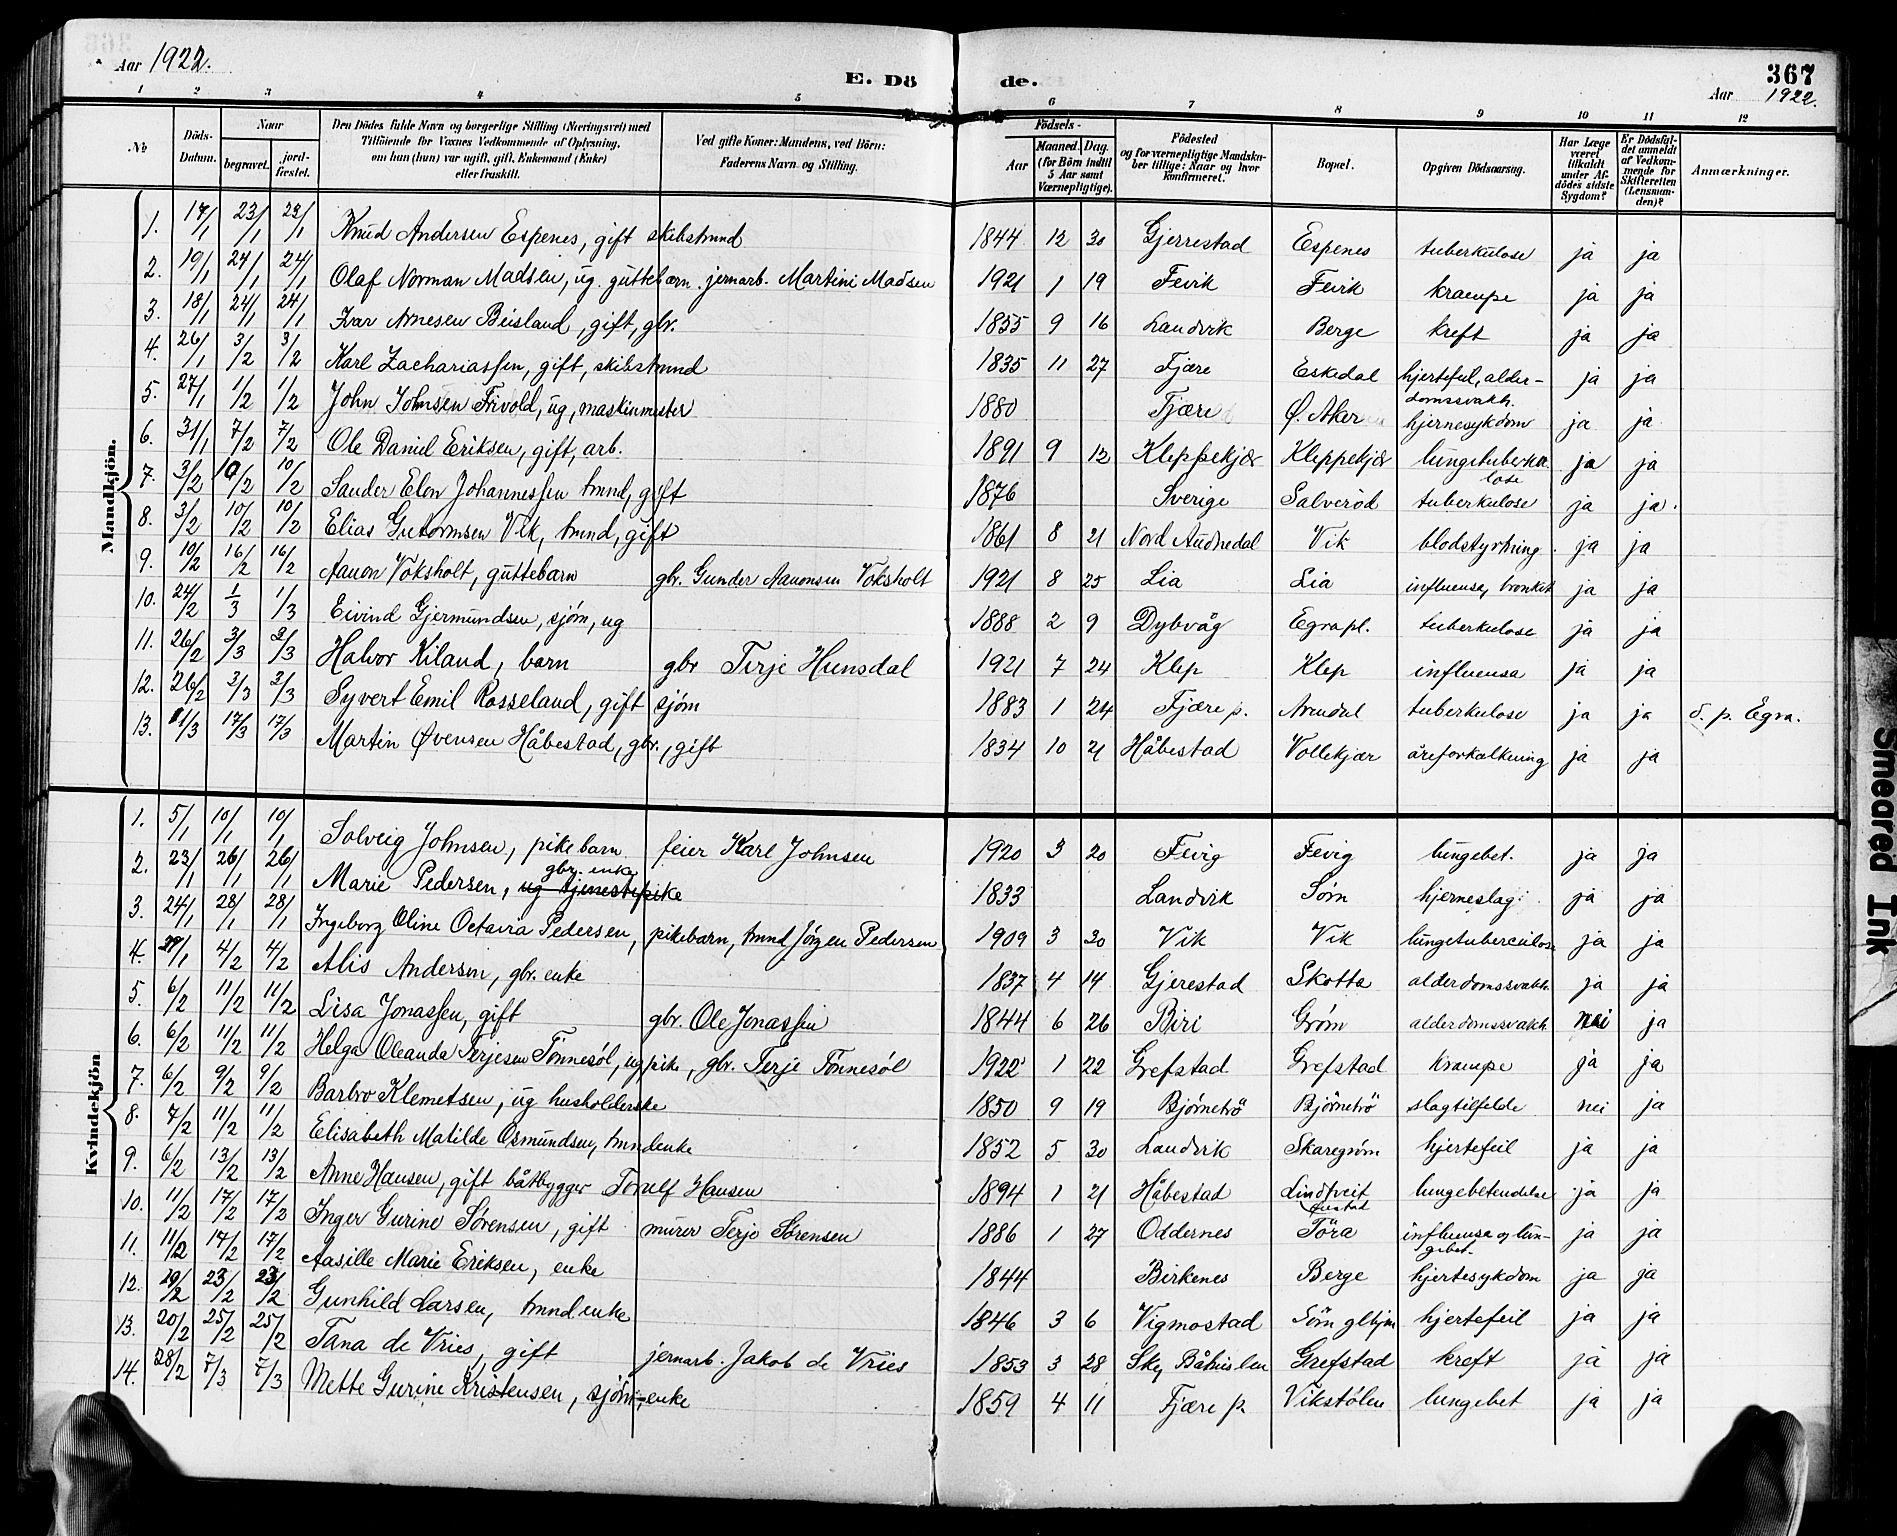 Aar 1922.
E. Dö
de.
367
Aar 1922.
1 2 3 4 5 6 7 8 9 10 11 12
No
Döds-Datum.
Naar
begravet.
jord-fæstet.
Den Dödes fulde Navn og borgerlige Stilling (Næringsvei) med
Tilföiende for Voxnes Vedkommende af Oplysning,
om han (hun) var ugift, gift, Enkemand (Enke)
eller fraskilt.
Ved gifte Koner: Mandens, ved Börn:
Faderens Navn og Stilling.
Födsels-
Aar
Maaned. Dag.
(for Börn indtil
5 Aar samt
Værnepligtige).
Födested
og for værnepligtige Mandskaber tillige: Naar og hvor konfirmeret.
Bopæl.
Opgiven Dödsaarsag.
Har Læge været tilkaldt under Afdödes sidste Sygdom?
Er Dödsfaldet anmeldt af Vedkommende for Skifteretten (Lensmanden)?
Anmærkninger.
Mandkjön.
1. 17/1 23/1 23/1 Knud Andersen Espenes, gift skibstmnd 1844 12 30 Gjerrestad Espenes tuberkulose ja ja
2. 19/1 24/1 24/1 Olaf Norman Madsen, ug. guttebarn. jernarb. Martini Madsen 1921 1 19 Fevik Fevik krampe ja ja
3. 18/1 24/1 24/1 Ivar Arnesen Beisland, gift, gbr. 1855 9 16 Landvik Berge kreft ja ja
4. 26/1 3/2 3/2 Karl Zachariassen, gift, skibstmnd 1835 11 27 Fjære Eskedal hjertefeil, alderdomssvakh. ja ja
5. 27/1 1/2 1/2 John Johnsen Frivold, ug, maskinmester 1880 Fjære Ø. Aker hjernesykdom ja ja
6. 31/1 7/2 7/2 Ole Daniel Eriksen, gift, arb. 1891 9 12 Kleppekjær Kleppekjær lungetuberkulose ja ja
7. 3/2 10/2 10/2 Sander Elon Johannessen tmnd, gift 1876 Sverige Salveröd tuberkulose ja ja.
8. 3/2 10/2 10/2 Elias Gutormsen Vik, tmnd, gift 1861 8 21 Nord Audnedal Vik blodstyrtning. ja ja
9. 10/2 16/2 16/2 Aanon Voksholt, guttebarn gbr. Gunder Aanonsen Voksholt 1921 8 25 Lia Lia influensa, bronkit ja ja
10. 24/2 1/3 1/3 Eivind Gjermundsen, sjøm, ug 1888 2 9 Dybvåg Egrapl. tuberkulose ja ja
11. 26/2 3/3 3/3 Halvor Kiland, barn gbr Terje Hunsdal 1921 7 24 Klep Klep influensa ja ja
12. 26/2 3/3 3/3 Syvert Emil Rosseland, gift sjøm 1883 1 24 Fjære p. Arendal tuberkulose ja ja d. p. Egra.
13. 11/3 17/3 17/3 Martin Øvensen Håbestad, gbr., gift 1834 10 21 Håbestad Vollekjær åreforkalkning ja ja
Kvindekjön
1. 5/1 10/1 10/1 Solveig Johnsen, pikebarn feier Karl Johnsen 1920 3 20 Fevig Fevig lungebet. ja ja
2. 23/1 26/1 26/1 Marie Pedersen, ug tjenestepike gbr. enke 1833 Landvik Søm hjerneslag ja ja
3. 24/1 28/1 28/1 Ingeborg Oline Octavia Pedersen, pikebarn, tmnd Jörgen Pedersen 1909 3 30 Vik Vik lungetuberculose ja ja
4. 29/1 4/2 4/2 Alis Andersen, gbr. enke 1837 4 14 Gjerestad Skotta alderdomssvakh. ja ja
5. 6/2 11/2 11/2 Lisa Jonassen, gift gbr. Ole Jonassen 1844 6 26 Biri Grøm alderdomssvakh nei ja
6. 6/2 11/2 11/2 Helga Oleanda Terjesen Tönnesöl, ug pike, gbr. Terje Tönnesöl 1922 1 22 Grefstad Grefstad krampe ja ja
7. 6/2 9/2 9/2 Barbro Klemetsen, ug husholderske 1850 9 19 Bjørnetrö Bjørnetrö slagtilfelde nei ja
8. 7/2 11/2 11/2 Elisabeth Matilde Osmundsen, tmndenke 1852 5 30 Landvik Skaregrøm hjertefeil ja ja
9. 6/2 13/2 13/2 Anne Hansen, gift båtbygger Torulf Hansen 1894 1 21 Håbestad Lindtveit, lungebetendelse ja ja
10. 11/2 17/2 17/2 Inger Gurine Sörensen, gift murer Terje Sörensen 1886 1 27 Oddernes Töra influensa og lungebet. ja ja
11. 11/2 17/2 17/2 Aasille Marie Eriksen, enke 1844 Birkenes Berge hjertesykdom ja ja
12. 29/2 23/2 23/2 Gunhild Larsen, tmnd.enke 1846 3 6 Vigmostad Söm glhjm hjertefeil ja ja
13. 20/2 25/2 25/2 Tana de Vries, gift jernarb. Jakob de Vries 1853 3 28 Ske, Båhuslen Grefstad kreft ja ja
14. 28/2 7/3 7/3 Mette Gurine Kristensen, sjöm.enke 1859 4 11 Fjære p. Vikstölen lungebet ja ja
Smeared Ink